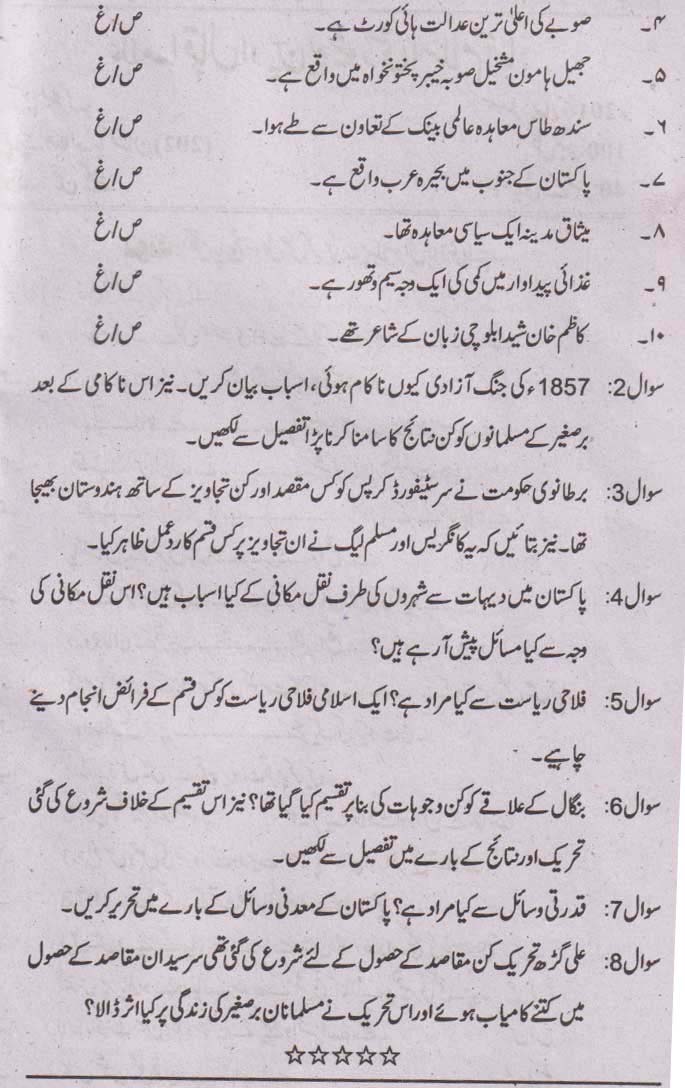 ۴۔ صوبے کی اعلیٰ ترین عدالت ہائی کورٹ ہے۔ ص/غ
۵۔ جھیل ہامون مشخیل صوبہ خیبر پختونخواہ میں واقع ہے۔ ص/غ
۶۔ سندھ طاس معاہدہ عالمی بینک کے تعاون سے طے ہوا۔ ص/غ
۷۔ پاکستان کے جنوب میں بحیرہ عرب واقع ہے۔ ص/غ
۸۔ میثاق مدینہ ایک سیاسی معاہدہ تھا۔ ص/غ
۹۔ غذائی پیداوار میں کمی کی ایک وجہ سیم و تھور ہے۔ ص/غ
۱۰۔ کاظم خان شیدا بلوچی زبان کے شاعر تھے۔ ص/غ
سوال 2: 1857ء کی جنگ آزادی کیوں ناکام ہوئی، اسباب بیان کریں۔ نیز اس ناکامی کے بعد
برصغیر کے مسلمانوں کو کن نتائج کا سامنا کرنا پڑا تفصیل سے لکھیں۔
سوال 3: برطانوی حکومت نے سر سٹیفورڈ کرپس کو کس مقصد اور کن تجاویز کے ساتھ ہندوستان بھیجا
تھا۔ نیز بتائیں کہ یہ کانگریس اور مسلم لیگ نے ان تجاویز پر کس قسم کا ردعمل ظاہر کیا۔
سوال 4: پاکستان میں دیہات سے شہروں کی طرف نقل مکانی کے کیا اسباب ہیں؟ اس نقل مکانی کی
وجہ سے کیا مسائل پیش آ رہے ہیں؟
سوال 5: فلاحی ریاست سے کیا مراد ہے؟ ایک اسلامی فلاحی ریاست کو کس قسم کے فرائض انجام دینے
چاہیے۔
سوال 6: بنگال کے علاقے کو کن وجوہات کی بنا پر تقسیم کیا گیا تھا؟ نیز اس تقسیم کے خلاف شروع کی گئی
تحریک اور نتائج کے بارے میں تفصیل سے لکھیں۔
سوال 7: قدرتی وسائل سے کیا مراد ہے؟ پاکستان کے معدنی وسائل کے بارے میں تحریر کریں۔
سوال 8: علی گڑھ تحریک کن مقاصد کے حصول کے لئے شروع کی گئی تھی سرسید ان مقاصد کے حصول
میں کتنے کامیاب ہوئے اور اس تحریک نے مسلمانان برصغیر کی زندگی پر کیا اثر ڈالا؟
☆☆☆☆☆